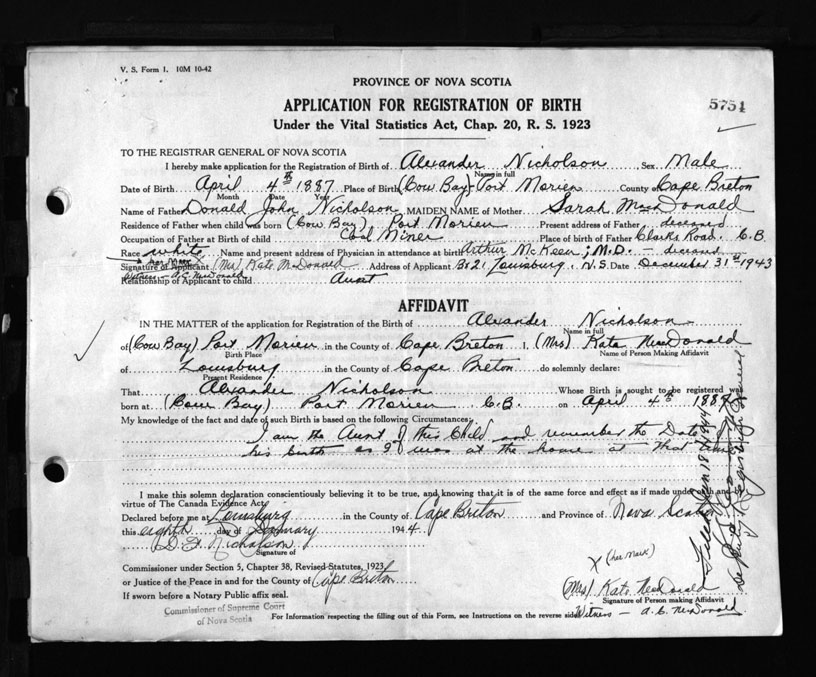 V. S. Form 1. 10M 10-42
PROVINCE OF NOVA SCOTIA
5754
APPLICATION FOR REGISTRATION OF BIRTH
Under the Vital Statistics Act, Chap. 20, R. S. 1923
TO THE REGISTRAR GENERAL OF NOVA SCOTIA
I hereby make application for the Registration of Birth of Alexander Nicholson Sex Male
Name in full
Date of Birth April 4th 1887 Place of Birth (Cow Bay) Port Morien County of Cape Breton
Month Date Year
Name of Father Donald John Nicholson MAIDEN NAME of Mother Sarah MacDonald
Residence of Father when child was born (Cow Bay) Port Morien Present address of Father deceased
Occupation of Father at Birth of child Coal Miner Place of birth of Father Clarks Road. C.B.
Race white Name and present address of Physician in attendance at birth Arthur McKeen, M.D. - deceased
her Mark X
Signature of Applicant (Mrs) Kate McDonald Address of Applicant Louisburg, N.S. Date December 31st 1943
Witness - A.C. MacDonald
Relationship of Applicant to child Aunt
AFFIDAVIT
IN THE MATTER of the application for Registration of the Birth of Alexander Nicholson
Name in full
of (Cow Bay) Port Morien in the County of Cape Breton I, (Mrs) Kate MacDonald
Birth Place Name of Person Making Affidavit
of Louisburg in the County of Cape Breton do solemnly declare:
Present Residence
That Alexander Nicholson Whose Birth is sought to be registered was
born at (Cow Bay) Port Morien C.B. on April 4th 1887
My knowledge of the fact and date of such Birth is based on the following Circumstances:
I am the Aunt of this Child and remember the Date
his birth as I was at the home at that time
I make this solemn declaration conscientiously believing it to be true, and knowing that it is of the same force and effect as if made under oath and
virtue of The Canada Evidence Act.
Declared before me at Louisburg in the County of Cape Breton and Province of Nova Scotia
this eighth day of January 1944
D. Nicholson
Signature of
Commissioner under Section 5, Chapter 38, Revised Statutes, 1923
or Justice of the Peace in and for the County of Cape Breton
If sworn before a Notary Public affix seal.
Commissioner of Supreme Court
of Nova Scotia
X (her mark)
(Mrs) Kate MacDonald
Signature of Person making Affidavit
Witness - A. C. MacDonald
For Information respecting the filling out of this Form, see Instructions on the reverse side
Filed Jan 18 1944
Deputy Registrar General